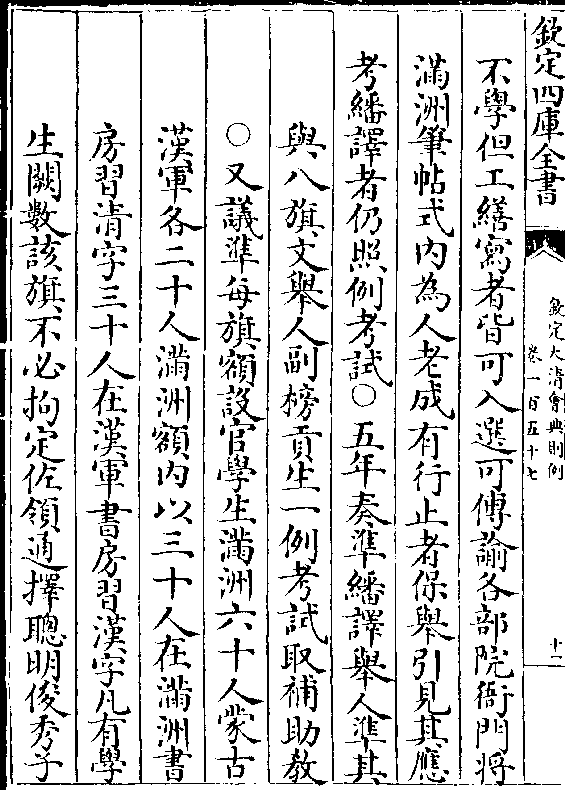 欽定四庫全書
欽定大清會典則例
卷一百五十七
十一
不學但工繕寫者皆可入選可傳諭各部院衙門將
滿洲筆帖式内為人老成有行止者保舉引見其應
考繙譯者仍照例考試○五年奏準繙譯舉人準其
與八旗文舉人副榜貢生一例考試取補助教
○又議準每旗額設官學生滿洲六十人蒙古
漢軍各二十人滿洲額内以三十人在滿洲書
房習清字三十人在漢軍書房習漢字凡有學
生闕數該旗不必拘定佐領通擇聰明俊秀子